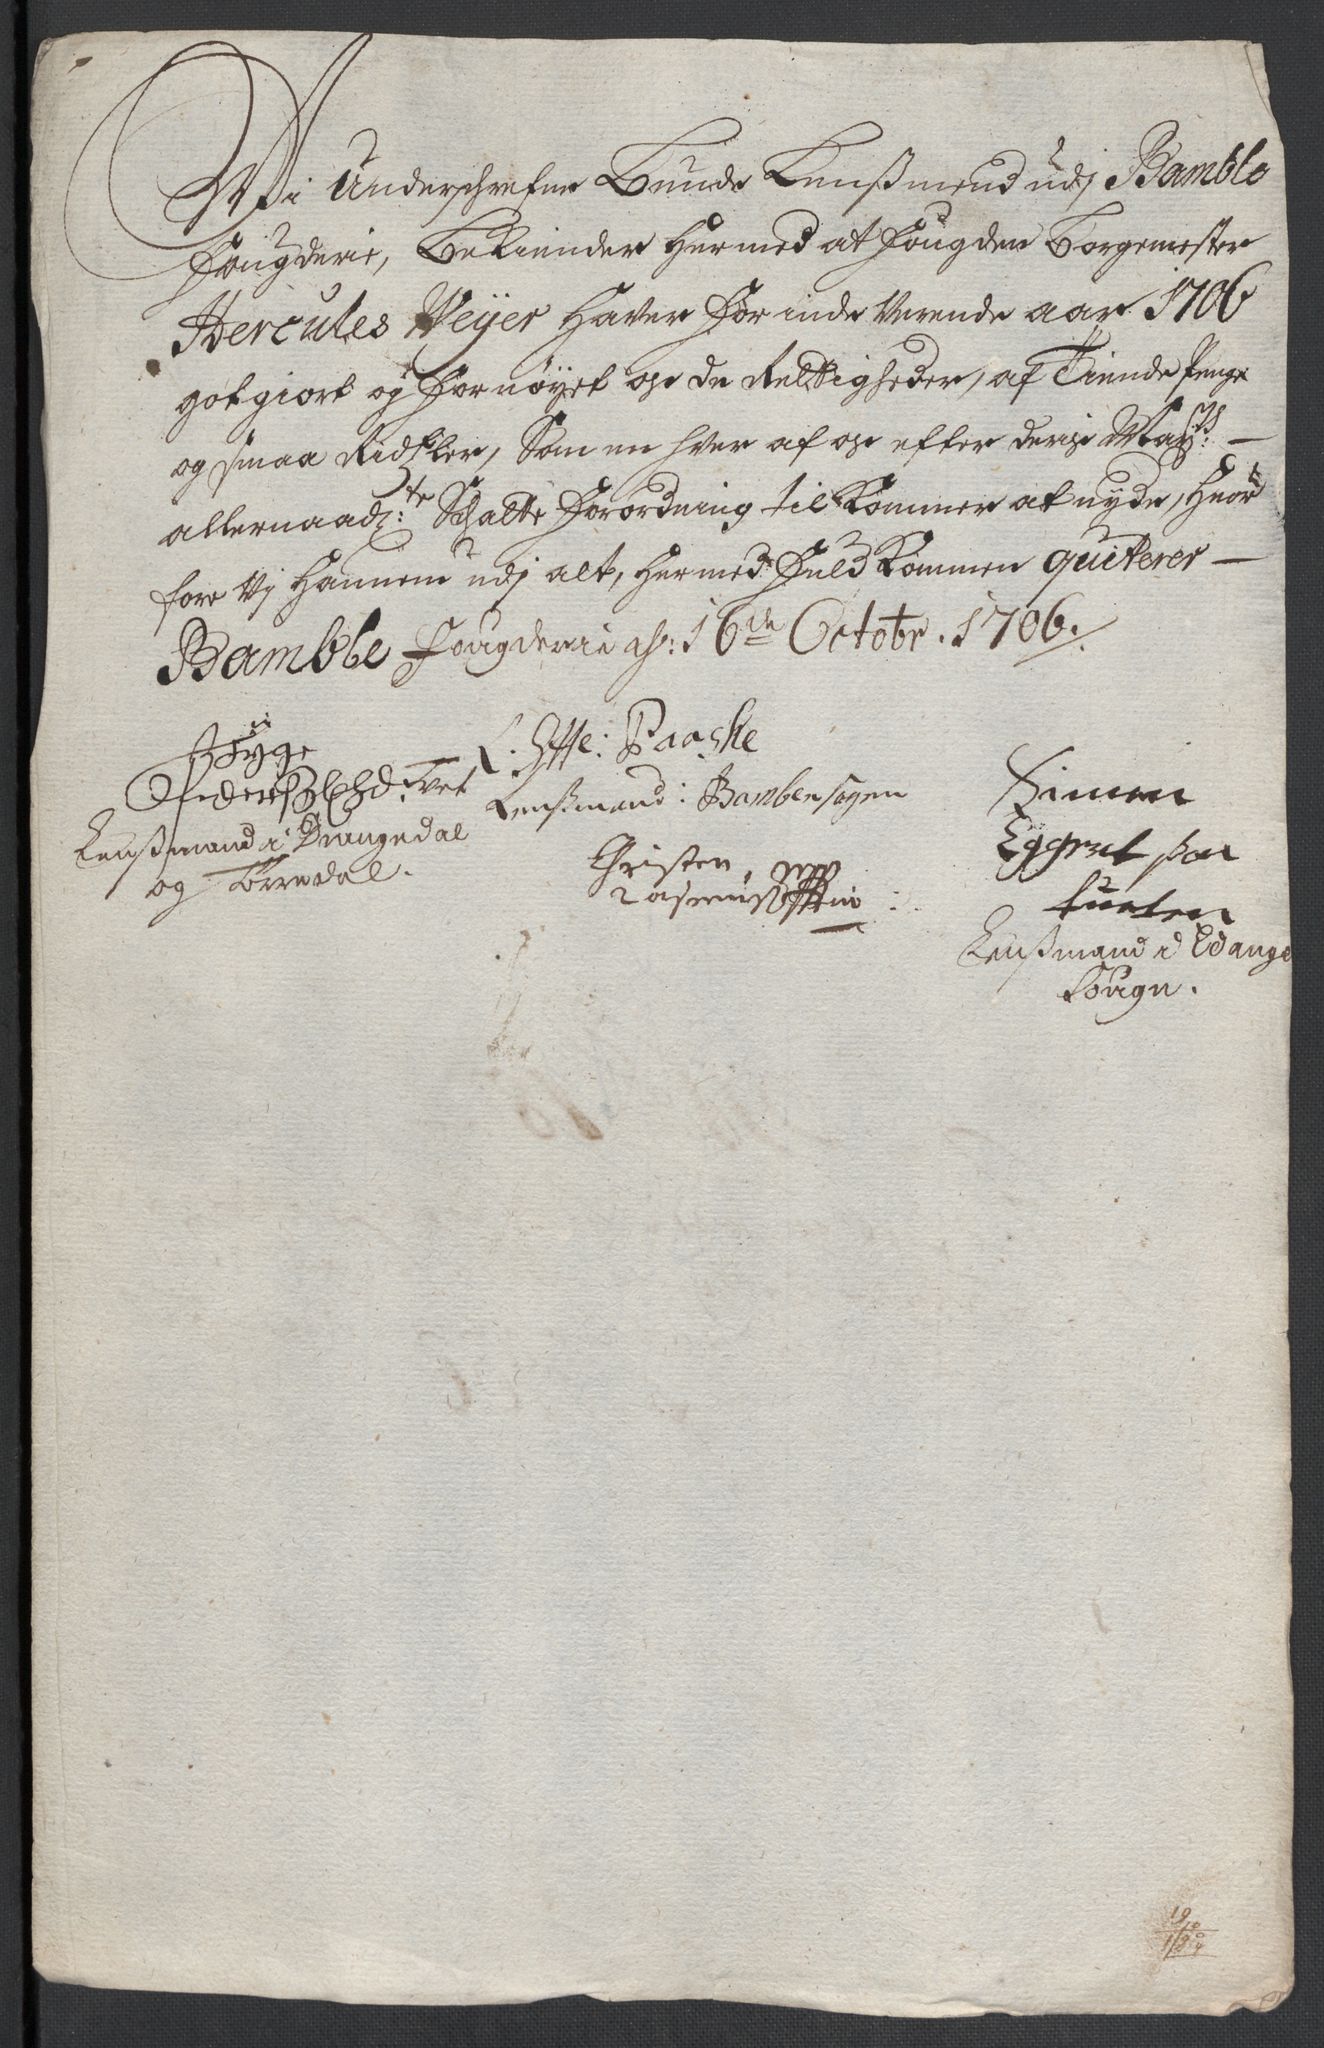 Wi Underschrefne Bunde Lensmend udj Bamble
fougderie, Bekiender Hermed at fougden Borgemester
Hercules Weyer Hafver for inde Verende aar 1706
gotgiort og fornøyet os de Rettigheder, af Tiende Penge
og smaa Ridtler, Som en hver af os efter deris Mayts: —
allernaadste Schatte forordning til Kommer at nyde, Hvor
fore Vj Hannem udj alt, Hermed fuld Kommen quiterer —
Bamble fougderie d: 16de Octobr. 1706.
Tyge
Anders tvet
Lensmand i Drangedal
og Tørredal.
L. Offe: Paaske
Lensmand: Bamble sogen
Christen
Rasmus
Simen
Eggret paa
tueten
Lensmand i Edange
sougn.
19